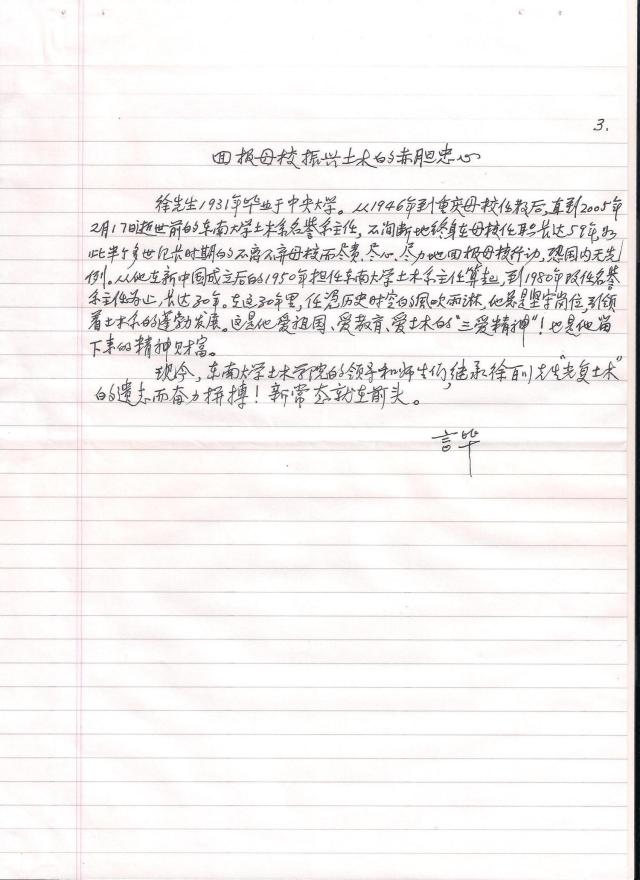 3.
回报母校振兴土木的赤胆忠心
徐先生1931年毕业于中央大学。从1946年到重庆母校任教后,直到2005年
2月17日逝世前的东南大学土木系名誉系主任,不间断地终身在母校任职长达59年,如
此半个多世纪长时期的不离不弃母校而尽责、尽心、尽力地回报母校行动,恐国内无先
例。从他在新中国成立后的1950年担任东南大学土木系主任算起,到1980年改任名誉
系主任为止,长达30年。在这30年里,任凭历史时空的风吹雨淋,他总是坚守岗位,引领
着土木系的蓬勃发展。这是他爱祖国、爱教育、爱土木的“三爱精神”!也是他留
下来的精神财富。
现今,东南大学土木学院的领导和师生们,继承徐百川先生“光复土木”
的遗志而奋力拼搏!新常态就在前头。
言毕